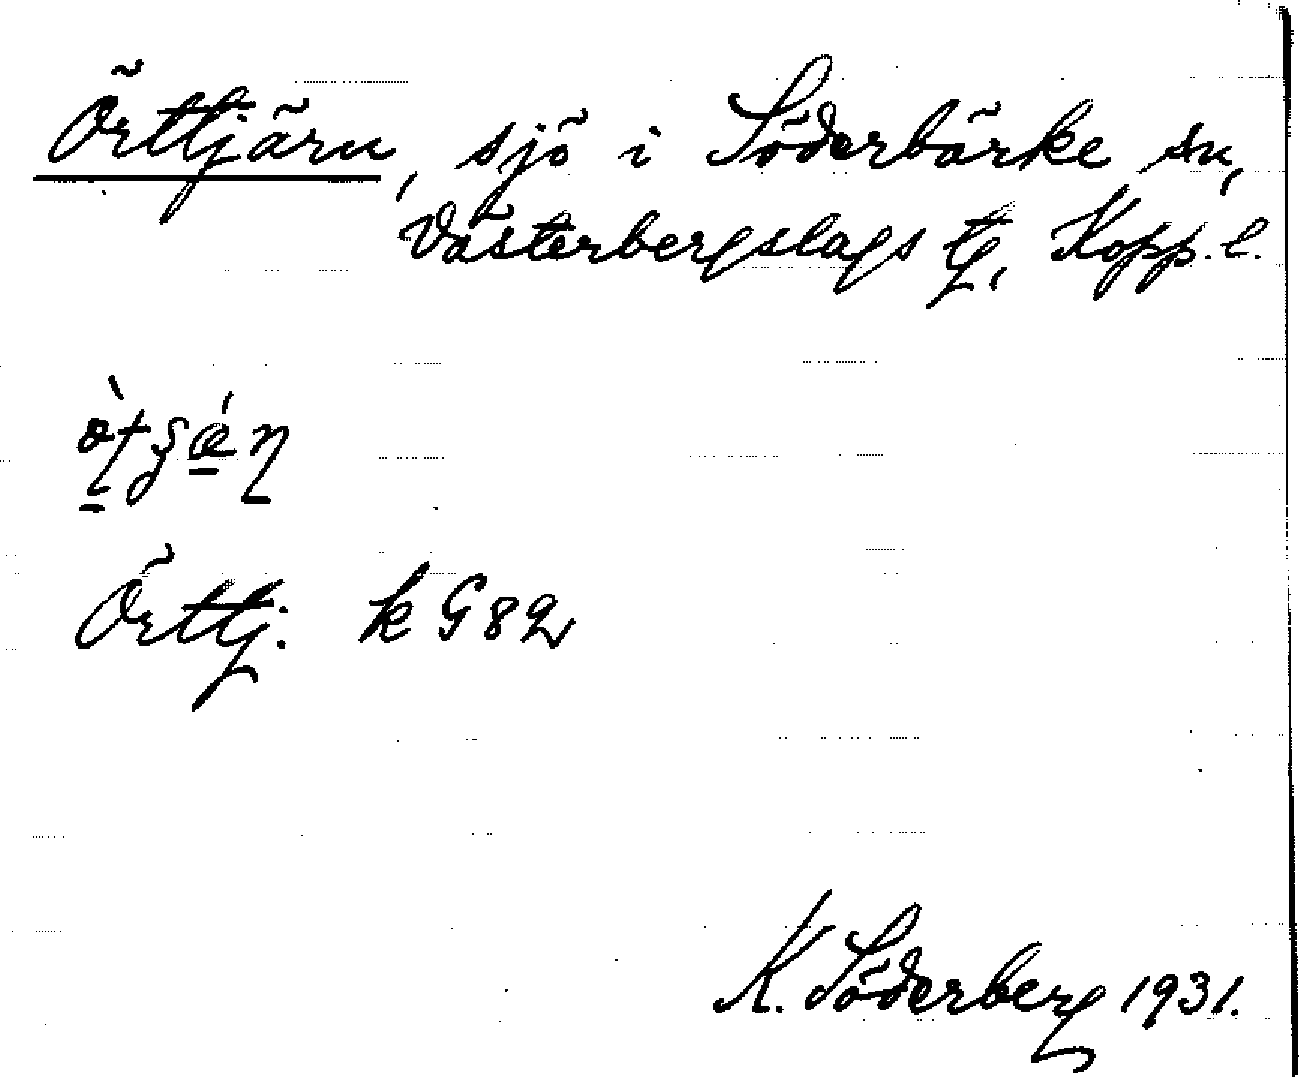 Örttjärn, sjö i Söderbärke sn,
Västerbergslags tg, Kopp. l.
Örttj. k G82
K. Söderberg 1931.